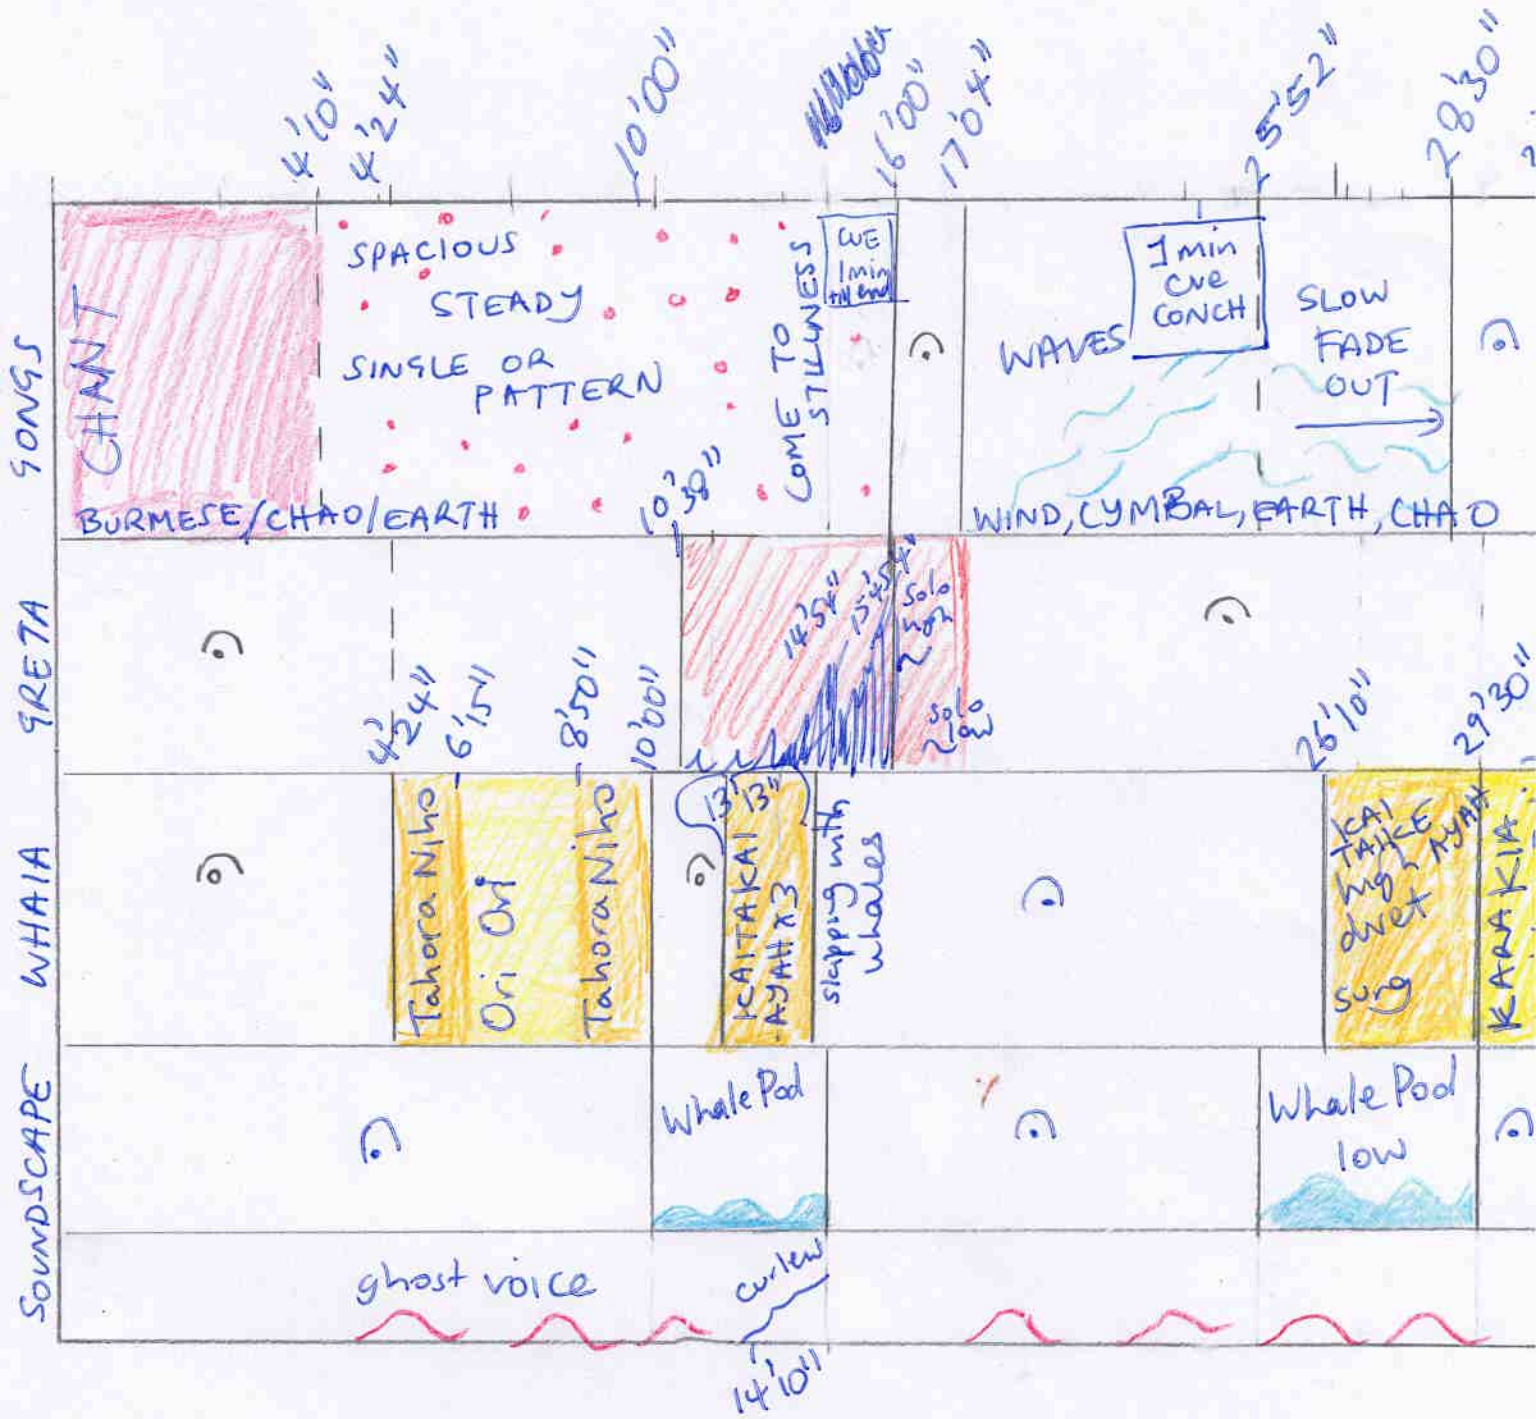 4'10"
4'24"
10'00"
16'00"
17'04"
25'52"
28'30"
GONGS
CHANT
SPACIOUS
STEADY
SINGLE OR
PATTERN
BURMESE/CHAO/EARTH
COME TO
STILLNESS
CUE
1min
till end
WAVES
1 min
cue
CONCH
SLOW
FADE
OUT
WIND, CYMBAL, EARTH, CHAO
GRETA
10'38"
14'54"
15'45"
solo
high
solo
low
WHAIA
4'24"
6'15"
8'50"
10'00"
Tahora Niho
Ori Ori
Tahora Niho
13'13"
KAITAKAI
AYAH x 3
slapping with
whales
26'10"
29'30"
KAI
TAKE
high AYAH
duet
sung
KARAKIA
SOUNDSCAPE
Whale Pod
Whale Pod
low
ghost voice
curlew
14'10"